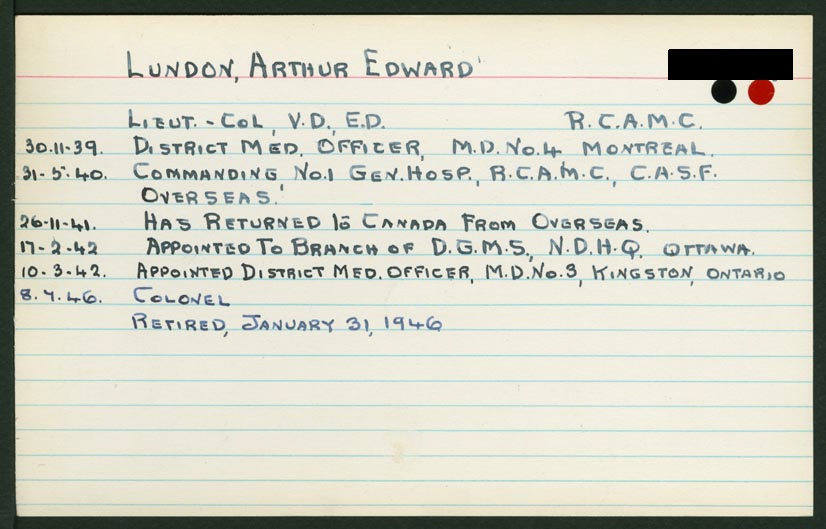 LUNDON, ARTHUR EDWARD
LIEUT. - COL, V.D., E.D. R.C.A.M.C.
30.11-39. DISTRICT MED. OFFICER, M.D. NO.4 MONTREAL.
31-5-40. COMMANDING NO.1 GEN. HOSP., R.C.A.M.C., C.A.S.F.
OVERSEAS.
26-11-41. HAS RETURNED TO CANADA FROM OVERSEAS.
17-2-42 APPOINTED TO BRANCH OF D.G.M.S., N.D.H.Q. OTTAWA.
10-3-42. APPOINTED DISTRICT MED. OFFICER, M.D. NO.3, KINGSTON, ONTARIO
8.4.46. COLONEL
RETIRED, JANUARY 31, 1946